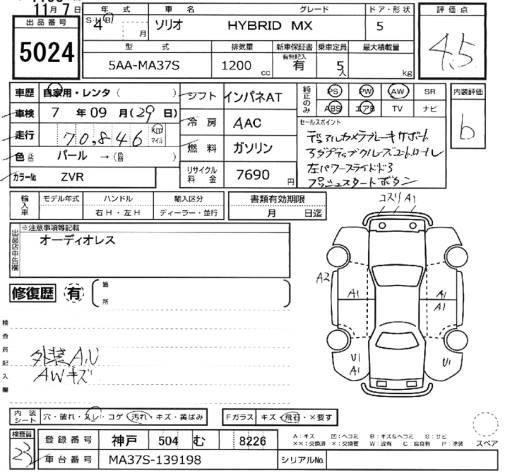 11月7日
出品番号
5024
年式 車名 グレード ドア・形状 評価点
4 年 月 ソリオ HYBRID MX 5
4.5
型式 排気量 新車保証書 乗車定員 最大積載量
有無記入
5AA-MA37S 1200 cc 有 5人 kg
車歴 自家用・レンタ( )
シフト インパネAT
純正のみ PS PW AW SR
ABS エアB TV ナビ
内装評価
b
車検 7 年 09 月(29日)
冷房 AAC
セールスポイント
デュアルカメラブレーキサポート
アダプティブクルーズコントロール
左パワースライドドア
プッシュスタートボタン
走行 70,846 km マイル
燃料 ガソリン
色 パール →( )
リサイクル料金 7690 円
カラーNo ZVR
輸入車 モデル年式 ハンドル 輸入区分 書類有効期限
右H・左H ディーラー・並行 月 日迄
コスリ A1
出品店申告欄
※注意事項等記載
オーディオレス
修復歴 有 箇所
A2
A1
A1
A1
A1
U1
U1
A1
検査員記入欄
外装A,U
AWキズ
内装シート 穴・破れ・スレ・コゲ・汚れ・キズ・黄ばみ
Fガラス キズ・飛石・×要す
スペア
検査員
23
登録番号 神戸 504 む 8226
車台番号 MA37S-139198
シリアルNo.
A:キズ U:ヘコミ B:キズ&ヘコミ S:サビ
××:交換済 ×:交換要 W:波有 C:腐食有 P:塗装